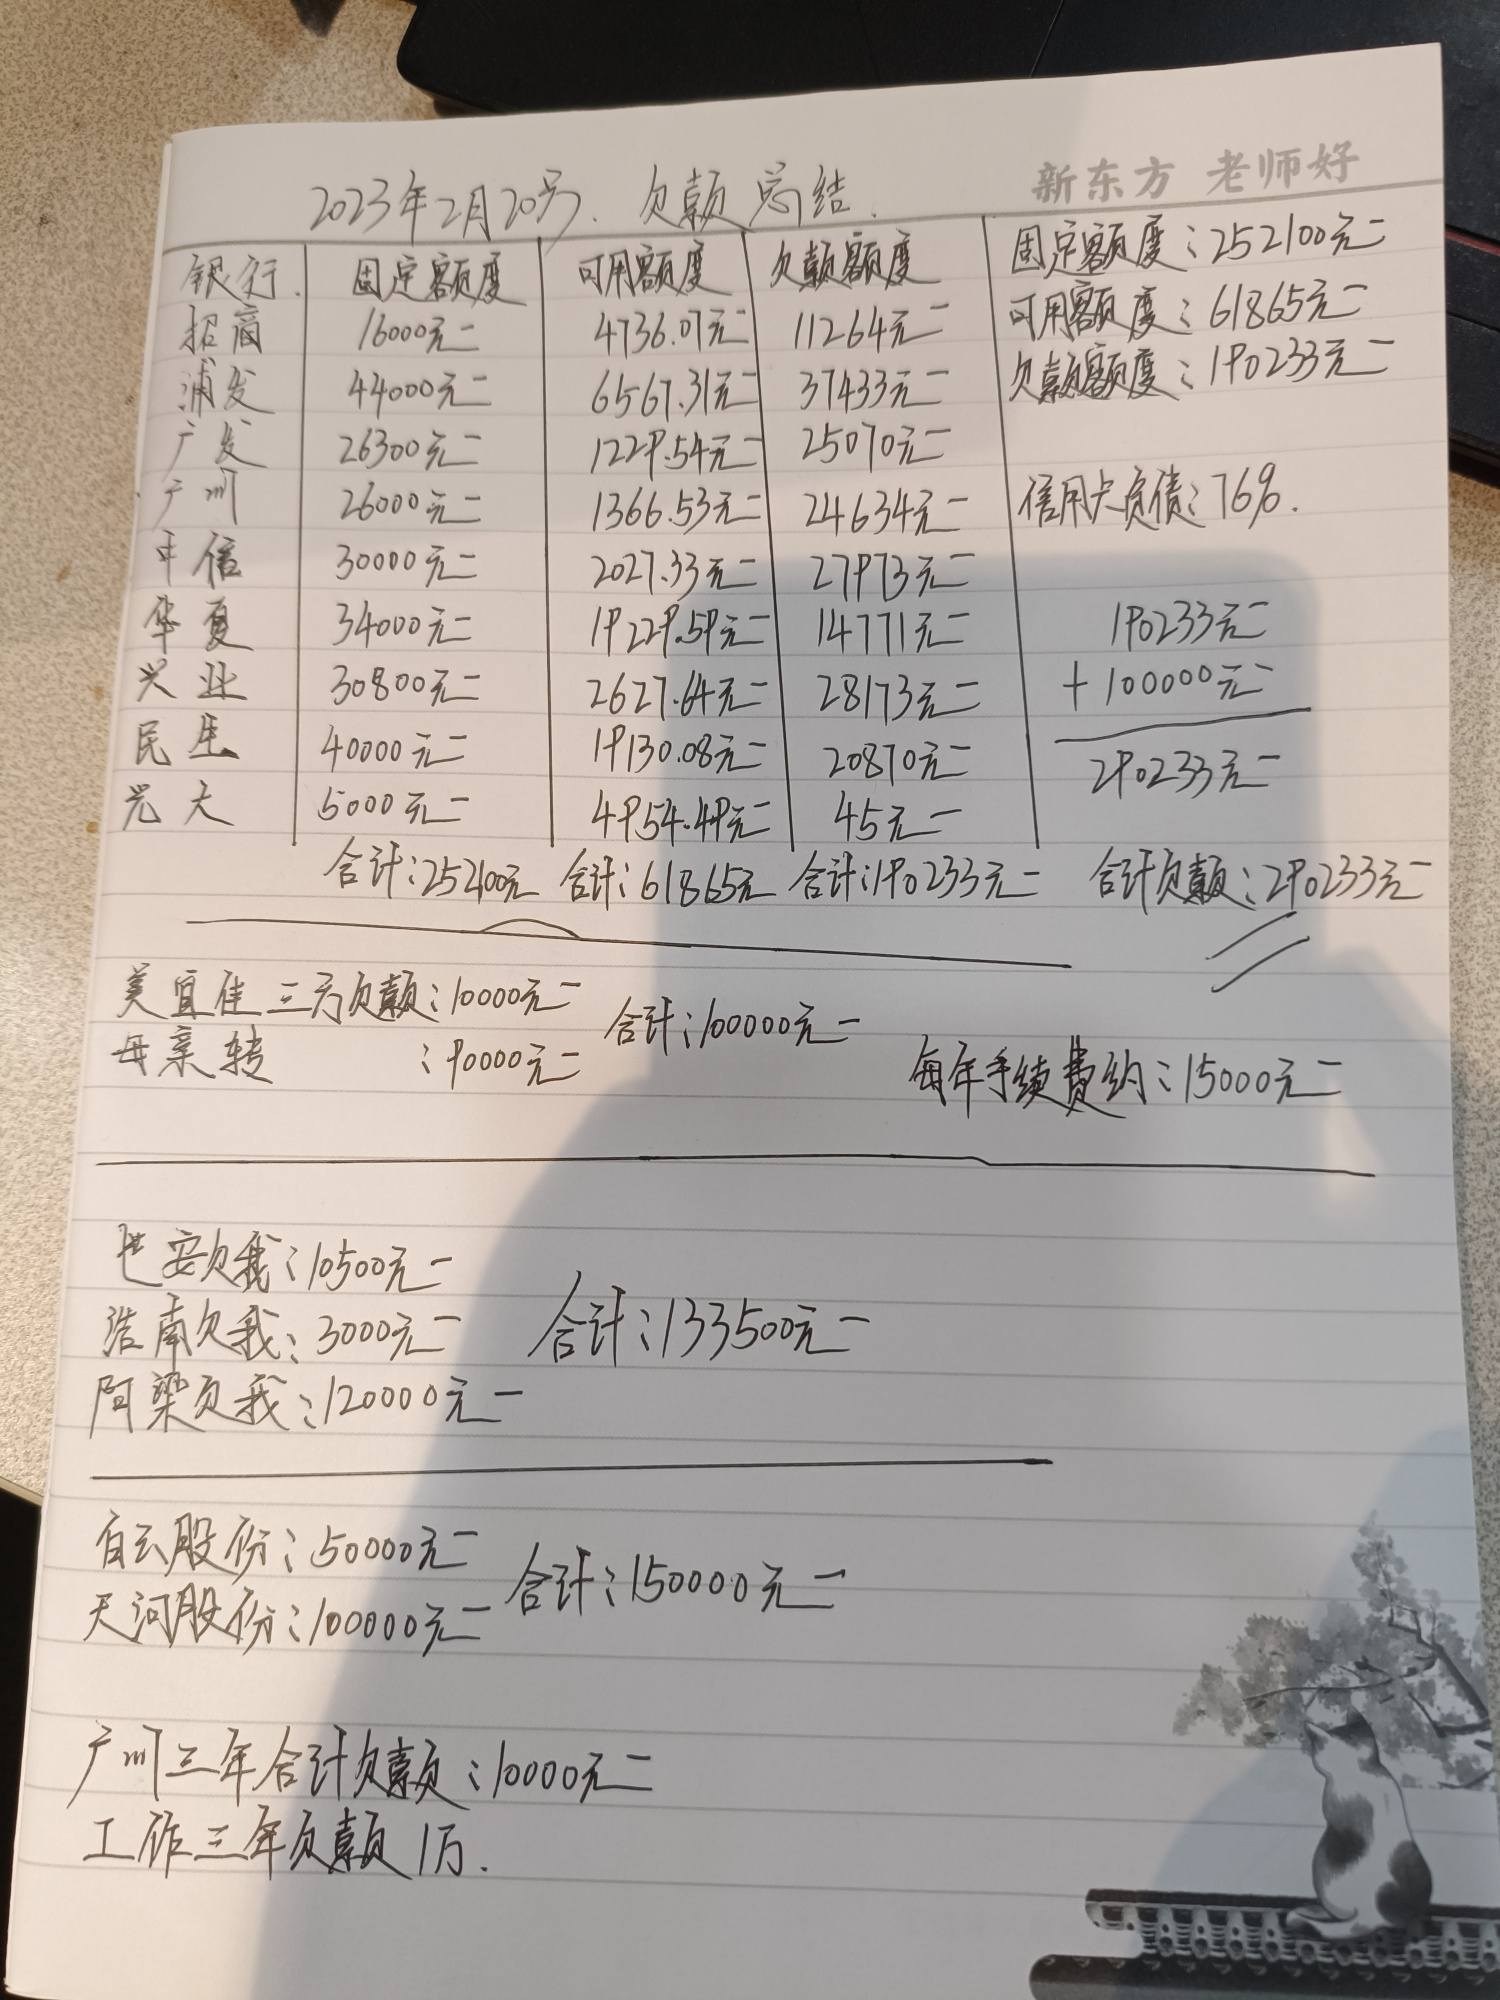 新东方 老师好
2023年2月20号. 欠款总结.
银行. 固定额度 可用额度 欠款额度 固定额度:252100元
招商 16000元 4736.07元 11264元 可用额度:61865元
浦发 44000元 6567.31元 37433元 欠款额度:190233元
广发 26300元 1229.54元 25070元
广州 26000元 1366.53元 24634元 信用卡负债:76%.
中信 30000元 2027.33元 27973元
华夏 34000元 19229.59元 14771元 190233元
兴业 30800元 2627.64元 28173元 +100000元
民生 40000元 19130.08元 20870元 290233元
光大 5000元 4954.49元 45元
合计:252100元 合计:61865元 合计:190233元 合计欠款:290233元
美宜佳三方欠款:10000元 合计:100000元
母亲转 :90000元
每年手续费约:15000元
世安欠我:10500元
浩南欠我:3000元 合计:133500元
阿梁欠我:120000元
白云股份:50000元 合计:150000元
天河股份:100000元
广州三年合计欠款:10000元
工作三年欠款1万.